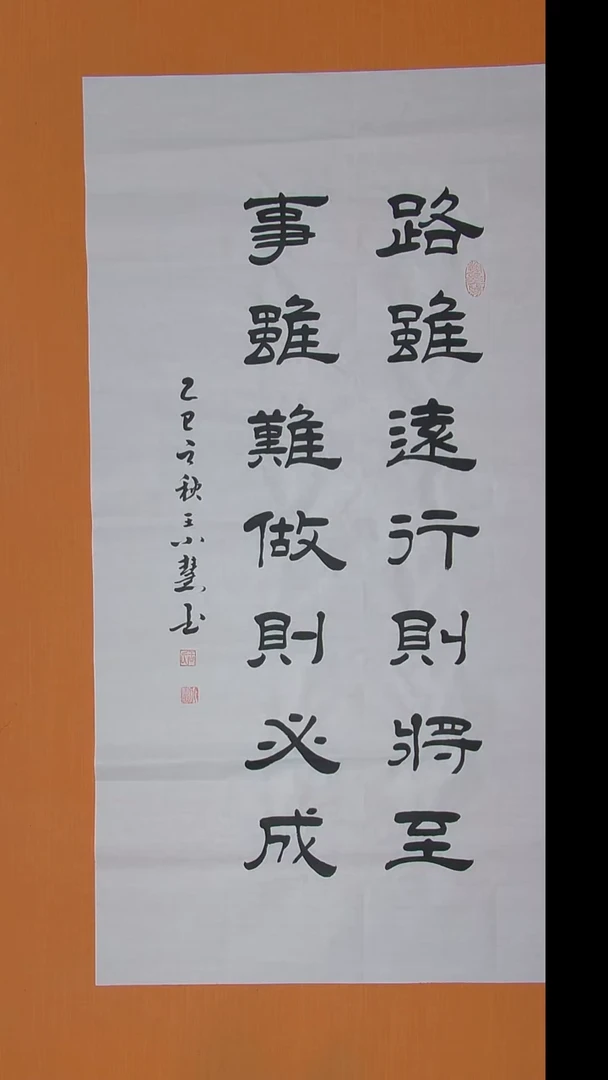 路雖遠行則將至
事雖難做則必成
乙巳之秋王小慧書